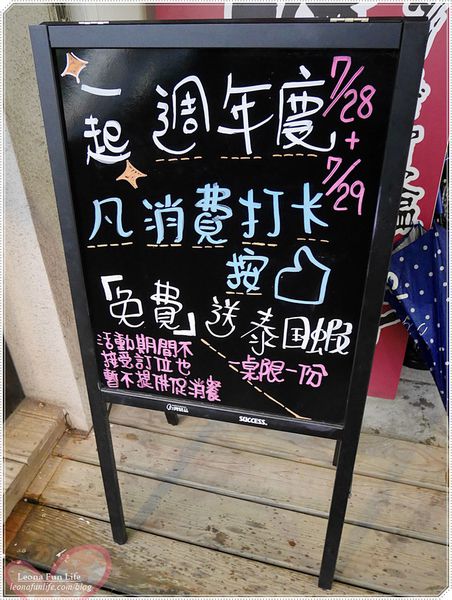 一起 週年慶 7/28
+
7/29
凡消費打卡
按
「免費」送泰国蝦
活動期間不
接受訂位也
暫不提供促消餐
一桌限一份
SUCCESS.
Leona Fun Life
leonafunlife.com/blog